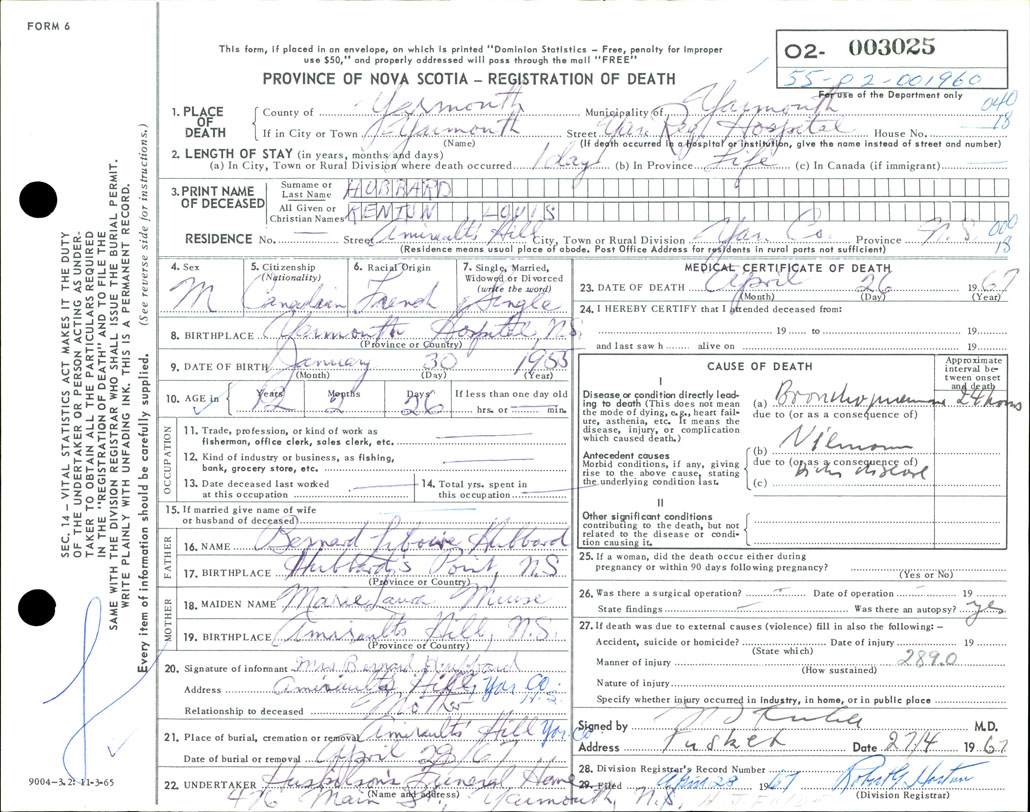 FORM 6
This form, if placed in an envelope, on which is printed "Dominion Statistics – Free, penalty for improper
use $50," and properly addressed will pass through the mail "FREE"
PROVINCE OF NOVA SCOTIA – REGISTRATION OF DEATH
02- 003025
55-02-001960
For use of the Department only
1. PLACE OF DEATH
County of Yarmouth Municipality of Yarmouth 040
If in City or Town Yarmouth Street Yar. Reg. Hospital House No. 18
(Name) (If death occurred in a hospital or institution, give the name instead of street and number)
2. LENGTH OF STAY (in years, months and days)
(a) In City, Town or Rural Division where death occurred 1 day (b) In Province Life (c) In Canada (if immigrant)
3. PRINT NAME OF DECEASED
Surname or Last Name HUBBARD
All Given or Christian Names KENTON LOUIS
RESIDENCE No. Street Amirault's Hill City, Town or Rural Division Yar. Co. Province N.S. 000 18
(Residence means usual place of abode. Post Office Address for residents in rural parts not sufficient)
4. Sex M
5. Citizenship (Nationality) Canadian
6. Racial Origin French
7. Single, Married, Widowed or Divorced (write the word) Single
8. BIRTHPLACE Yarmouth Hospital, N.S.
(Province or Country)
9. DATE OF BIRTH January 30 1955
(Month) (Day) (Year)
10. AGE in Years 12 Months 2 Days 26 If less than one day old hrs. or min.
OCCUPATION
11. Trade, profession, or kind of work as
fisherman, office clerk, sales clerk, etc.
12. Kind of industry or business, as fishing,
bank, grocery store, etc.
13. Date deceased last worked
at this occupation
14. Total yrs. spent in
this occupation
15. If married give name of wife
or husband of deceased
FATHER
16. NAME Bernard Hubbard
17. BIRTHPLACE Hubbard's Point, N.S
(Province or Country)
MOTHER
18. MAIDEN NAME Marie Laura Muise
19. BIRTHPLACE Amiraults Hill, N.S.
(Province or Country)
20. Signature of informant Mrs Bernard Hubbard
Address Amiraults Hill, Yar Co. N.S.
Relationship to deceased Mother
21. Place of burial, cremation or removal Amiraults Hill Yar Co
Date of burial or removal April 28 67
22. UNDERTAKER Funeral Home
(Name and address) Main St., Yarmouth, N.S.
MEDICAL CERTIFICATE OF DEATH
23. DATE OF DEATH April 26 1967
(Month) (Day) (Year)
24. I HEREBY CERTIFY that I attended deceased from:
19 to 19
and last saw h alive on 19
CAUSE OF DEATH
Approximate interval between onset and death
I
Disease or condition directly leading to death (This does not mean the mode of dying, e.g., heart failure, asthenia, etc. It means the disease, injury, or complication which caused death.)
(a) Bronchopneumonia 24 hours
due to (or as a consequence of)
Antecedent causes
Morbid conditions, if any, giving rise to the above cause, stating the underlying condition last.
(b) Niemann
due to (or as a consequence of)
Picks disease
(c)
II
Other significant conditions
contributing to the death, but not related to the disease or condition causing it.
25. If a woman, did the death occur either during
pregnancy or within 90 days following pregnancy?
(Yes or No)
26. Was there a surgical operation? Date of operation 19
State findings Was there an autopsy? yes
27. If death was due to external causes (violence) fill in also the following: –
Accident, suicide or homicide? Date of injury 19
(State which)
Manner of injury 289.0
(How sustained)
Nature of injury
Specify whether injury occurred in industry, in home, or in public place
Signed by M.D.
Address Tusket Date 27/4 1967
28. Division Registrar's Record Number
29. Filed April 28 1967
(Division Registrar)
9004-3.2: 11-3-65
SEC. 14 – VITAL STATISTICS ACT MAKES IT THE DUTY
OF THE UNDERTAKER OR PERSON ACTING AS UNDER-
TAKER TO OBTAIN ALL THE PARTICULARS REQUIRED
IN THE "REGISTRATION OF DEATH" AND TO FILE THE
SAME WITH THE DIVISION REGISTRAR WHO SHALL ISSUE THE BURIAL PERMIT.
WRITE PLAINLY WITH UNFADING INK. THIS IS A PERMANENT RECORD.
Every item of information should be carefully supplied. (See reverse side for instructions.)